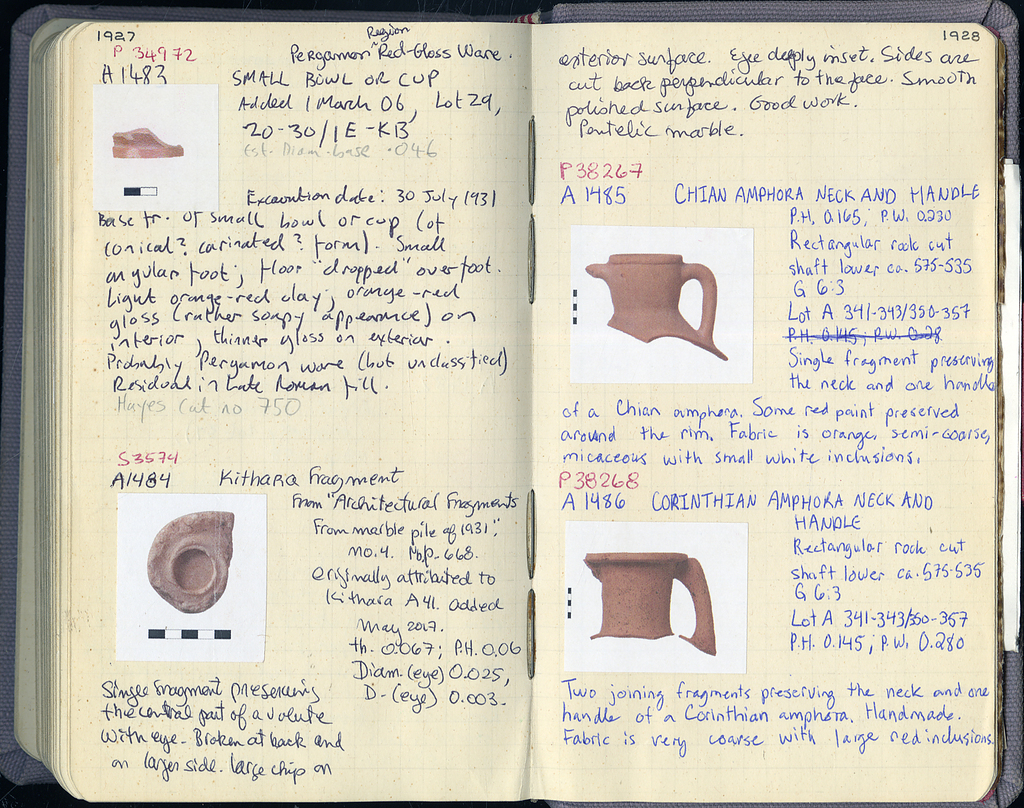 1927
P 34972
A 1483
Region
Pergamon Red-Gloss Ware.
SMALL BOWL OR CUP
Added 1 March 06, Lot 29,
20-30/1E-KB
Est. Diam. base .046
Excavation date: 30 July 1931
Base fr. of small bowl or cup (of
conical? carinated? form). Small
angular foot; floor "dropped" over foot.
Light orange-red clay; orange-red
gloss (rather soapy appearance) on
interior, thinner gloss on exterior.
Probably Pergamon ware (but unclassified)
Residual in Late Roman fill.
Hayes Cat no 750
S3574
A1484 Kithara Fragment
From "Architectural Fragments
From marble pile of 1931",
no. 4. Nb.p. 668.
Originally attributed to
Kithara A41. Added
May 2017.
th. 0.067; P.H. 0.06
Diam. (eye) 0.025,
D. (eye) 0.003.
Single fragment preserving
the central part of a volute
with eye. Broken at back and
on larger side. large chip on
1928
exterior surface. Eye deeply inset. Sides are
cut back perpendicular to the face. Smooth
polished surface. Good work.
Pentelic marble.
P38267
A 1485 CHIAN AMPHORA NECK AND HANDLE
P.H. 0.165; P.W. 0.230
Rectangular rock cut
shaft lower ca. 575-535
G 6:3
Lot A 341-343/350-357
P.H. 0.145; P.W. 0.28
Single fragment preserving
the neck and one handle
of a Chian amphora. Some red paint preserved
around the rim. Fabric is orange, semi-coarse,
micaceous with small white inclusions.
P38268
A 1486 CORINTHIAN AMPHORA NECK AND
HANDLE
Rectangular rock cut
shaft lower ca. 575-535
G 6:3
Lot A 341-343/350-357
P.H. 0.145; P.W. 0.280
Two joining fragments preserving the neck and one
handle of a Corinthian amphora. Handmade.
Fabric is very coarse with large red inclusions.